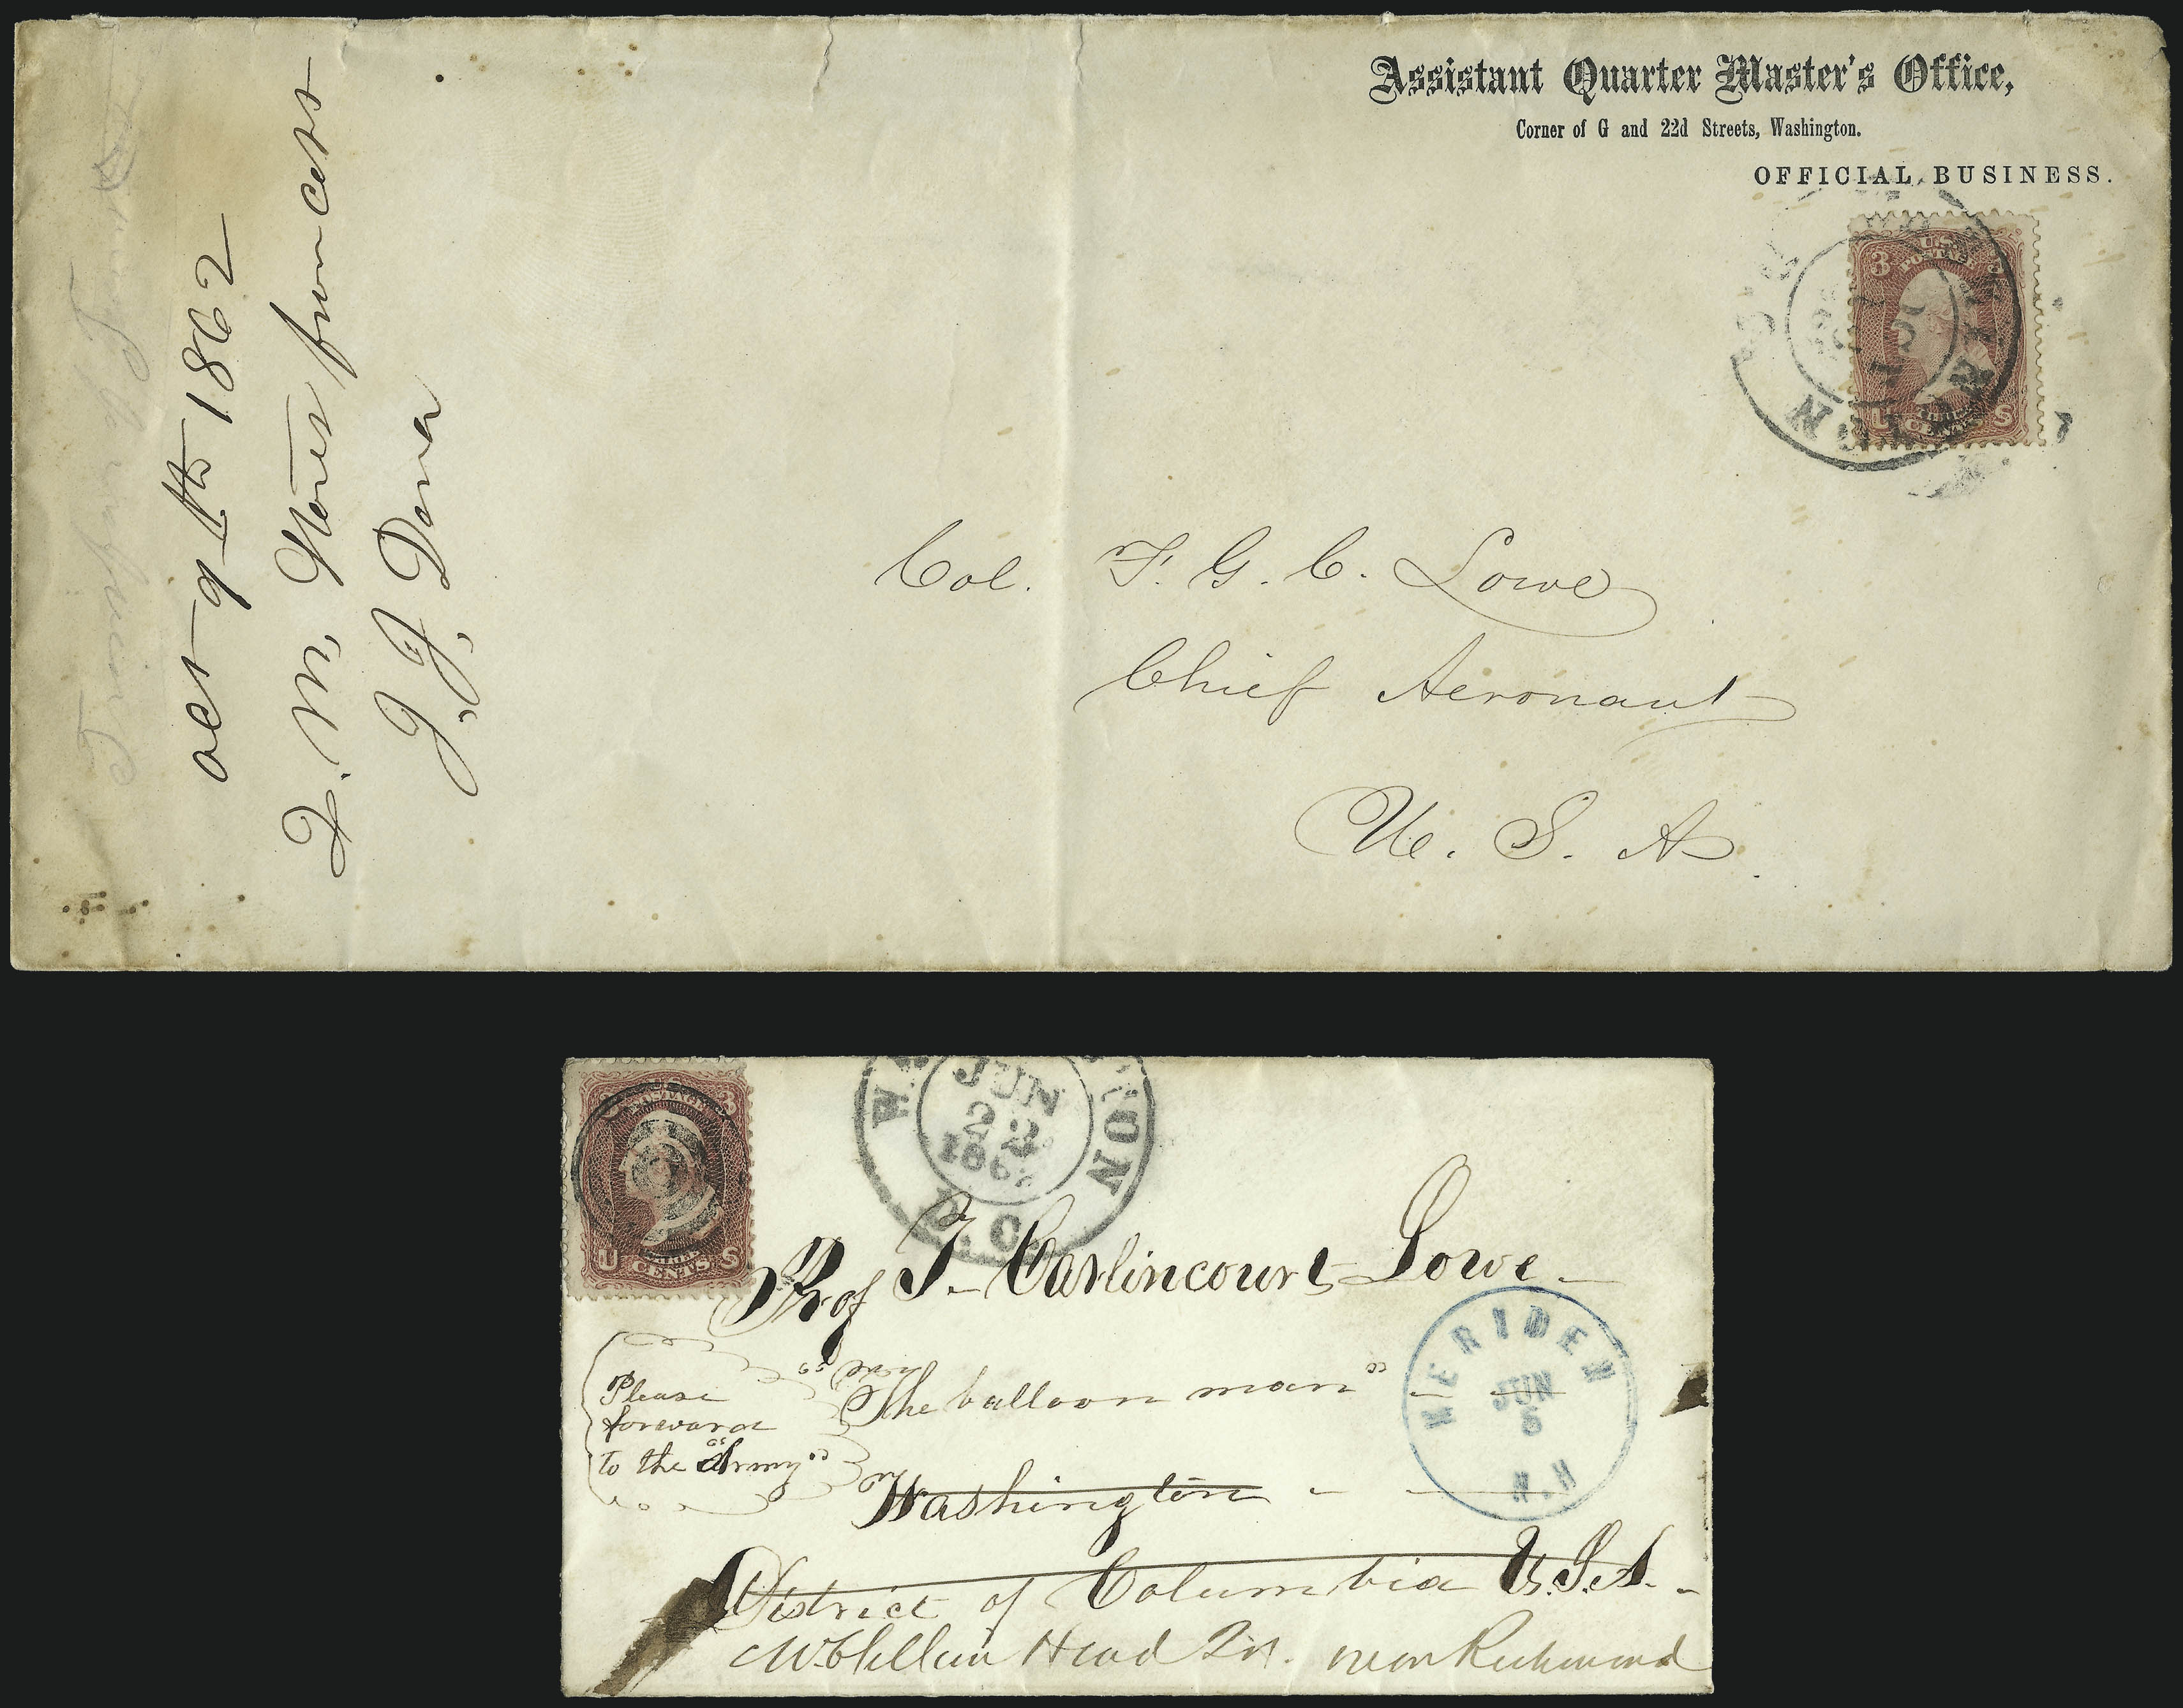 Assistant Quarter Master's Office,
Corner of G and 22d Streets, Washington.
OFFICIAL BUSINESS.
3 U.S. POSTAGE 3
U THREE CENTS S
Col. T. G. C. Lowe
Chief Aeronaut
U. S. A.
Oct 9th 1862
Q. M. Stores from Capt
J. J. Dana
JUN
22
1862
D.C.
3
U CENTS S
Prof T- Carlincourt Lowe-
"The balloon man"
Please
forward
to the "Army"
Washington
District of Columbia U.S.A.
McClellan Head Qrs. near Richmond
MERIDEN
JUN
5
N.H